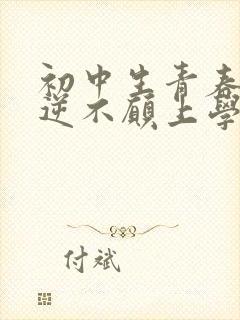 初中生青春
逆不愿上学
付斌